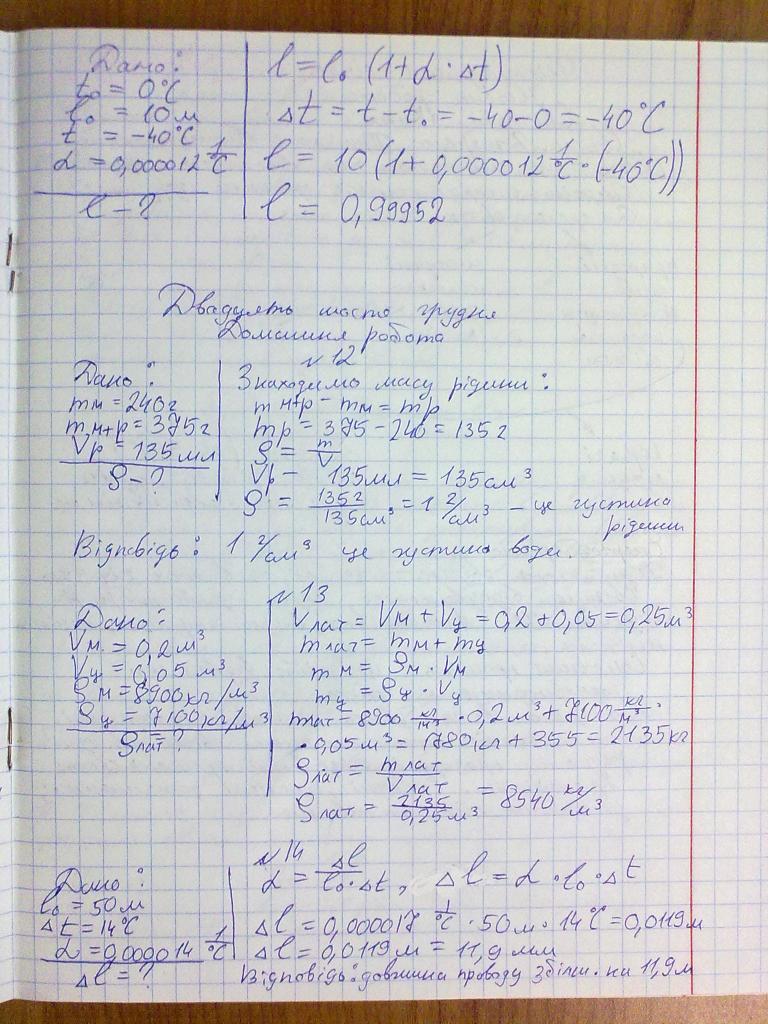 Дано:
t₀ = 0°C
l₀ = 10м
t = -40°C
α = 0,000012 1/°C
l - ?
l = l₀ (1+α·Δt)
Δt = t - t₀ = -40-0 = -40°C
l = 10(1+0,000012 1/°C·(-40°C))
l = 0,99952
Двадцять шосте грудня
Домашня робота
№12
Дано:
mм = 240г
mм+р = 375г
Vр = 135мл
ρ - ?
Знаходимо масу рідини:
mм+р - mм = mр
mр = 375 - 240 = 135г
ρ = m/V
Vр - 135мл = 135см³
ρ = 135г/135см³ = 1 г/см³ - це густина
рідини
Відповідь: 1 г/см³ це густина води.
№13
Дано:
Vм = 0,2м³
Vц = 0,05 м³
ρм = 8900кг/м³
ρц = 7100кг/м³
ρлат = ?
Vлат = Vм + Vц = 0,2 + 0,05 = 0,25м³
mлат = mм + mц
mм = ρм · Vм
mц = ρц · Vц
mлат = 8900 кг/м³ · 0,2м³ + 7100 кг/м³ ·
· 0,05м³ = 1780кг + 355 = 2135кг
ρлат = mлат/Vлат
ρлат = 2135/0,25м³ = 8540 кг/м³
№14
Дано:
l₀ = 50м
Δt = 14°C
α = 0,000014 1/°C
Δl = ?
α = Δl/l₀·Δt, Δl = α·l₀·Δt
Δl = 0,000017 1/°C · 50м · 14°C = 0,0119м
Δl = 0,0119м = 11,9мм
Відповідь: довжина проводу збільш. на 11,9м